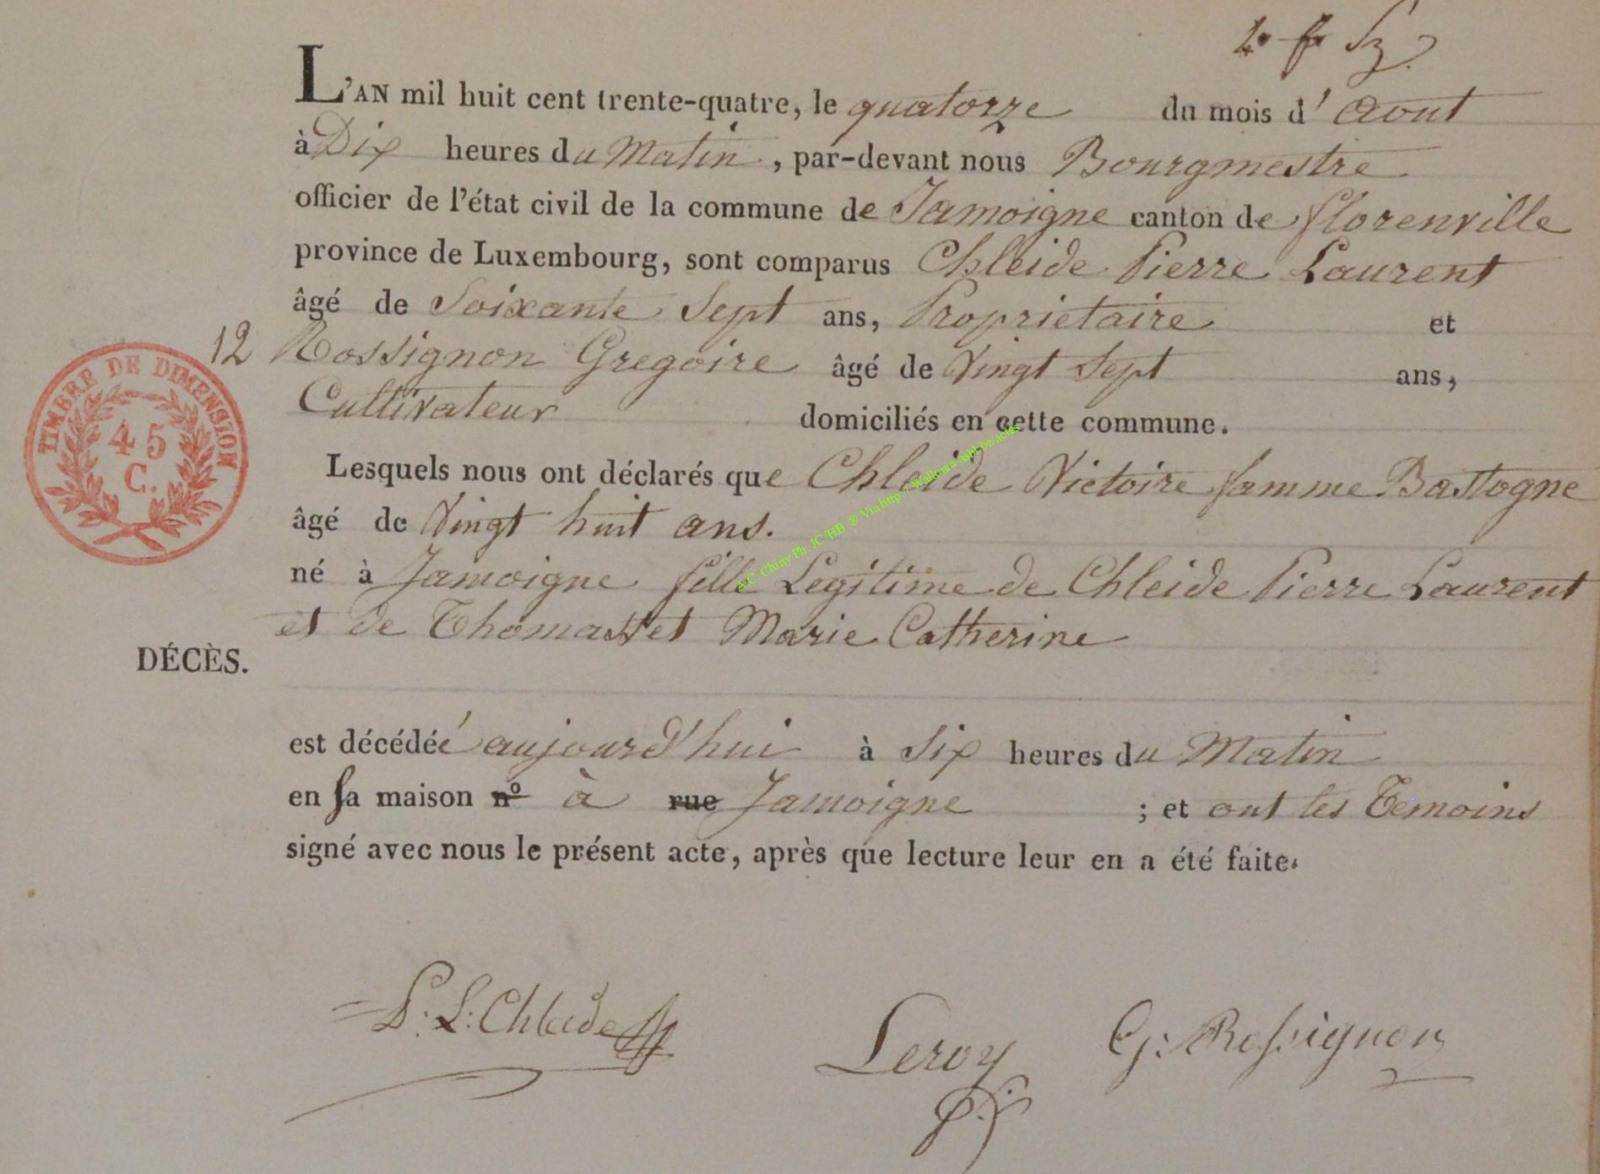 L'AN mil huit cent trente-quatre, le quatorze du mois d' Aout
à Dix heures du Matin, par-devant nous Bourgmestre
officier de l'état civil de la commune de Jamoigne canton de florenville
province de Luxembourg, sont comparus Chleide Pierre Laurent
âgé de Soixante Sept ans, Proprietaire et
12 Rossignon Gregoire âgé de Vingt Sept ans,
Cultivateur domiciliés en cette commune.
TIMBRE DE DIMENSION
45
C.
Lesquels nous ont déclarés que Chleide Victoire famme Bastogne
âgé de Vingt huit ans.
né à Jamoigne fille Legitime de Chleide Pierre Laurent
et de Thomasset Marie Catherine
DÉCÈS.
est décédée aujourd'hui à Six heures du Matin
en sa maison n° à rue Jamoigne ; et ont les Temoins
signé avec nous le présent acte, après que lecture leur en a été faite.
P. L. Chleide
Leroy
G. Rossignon